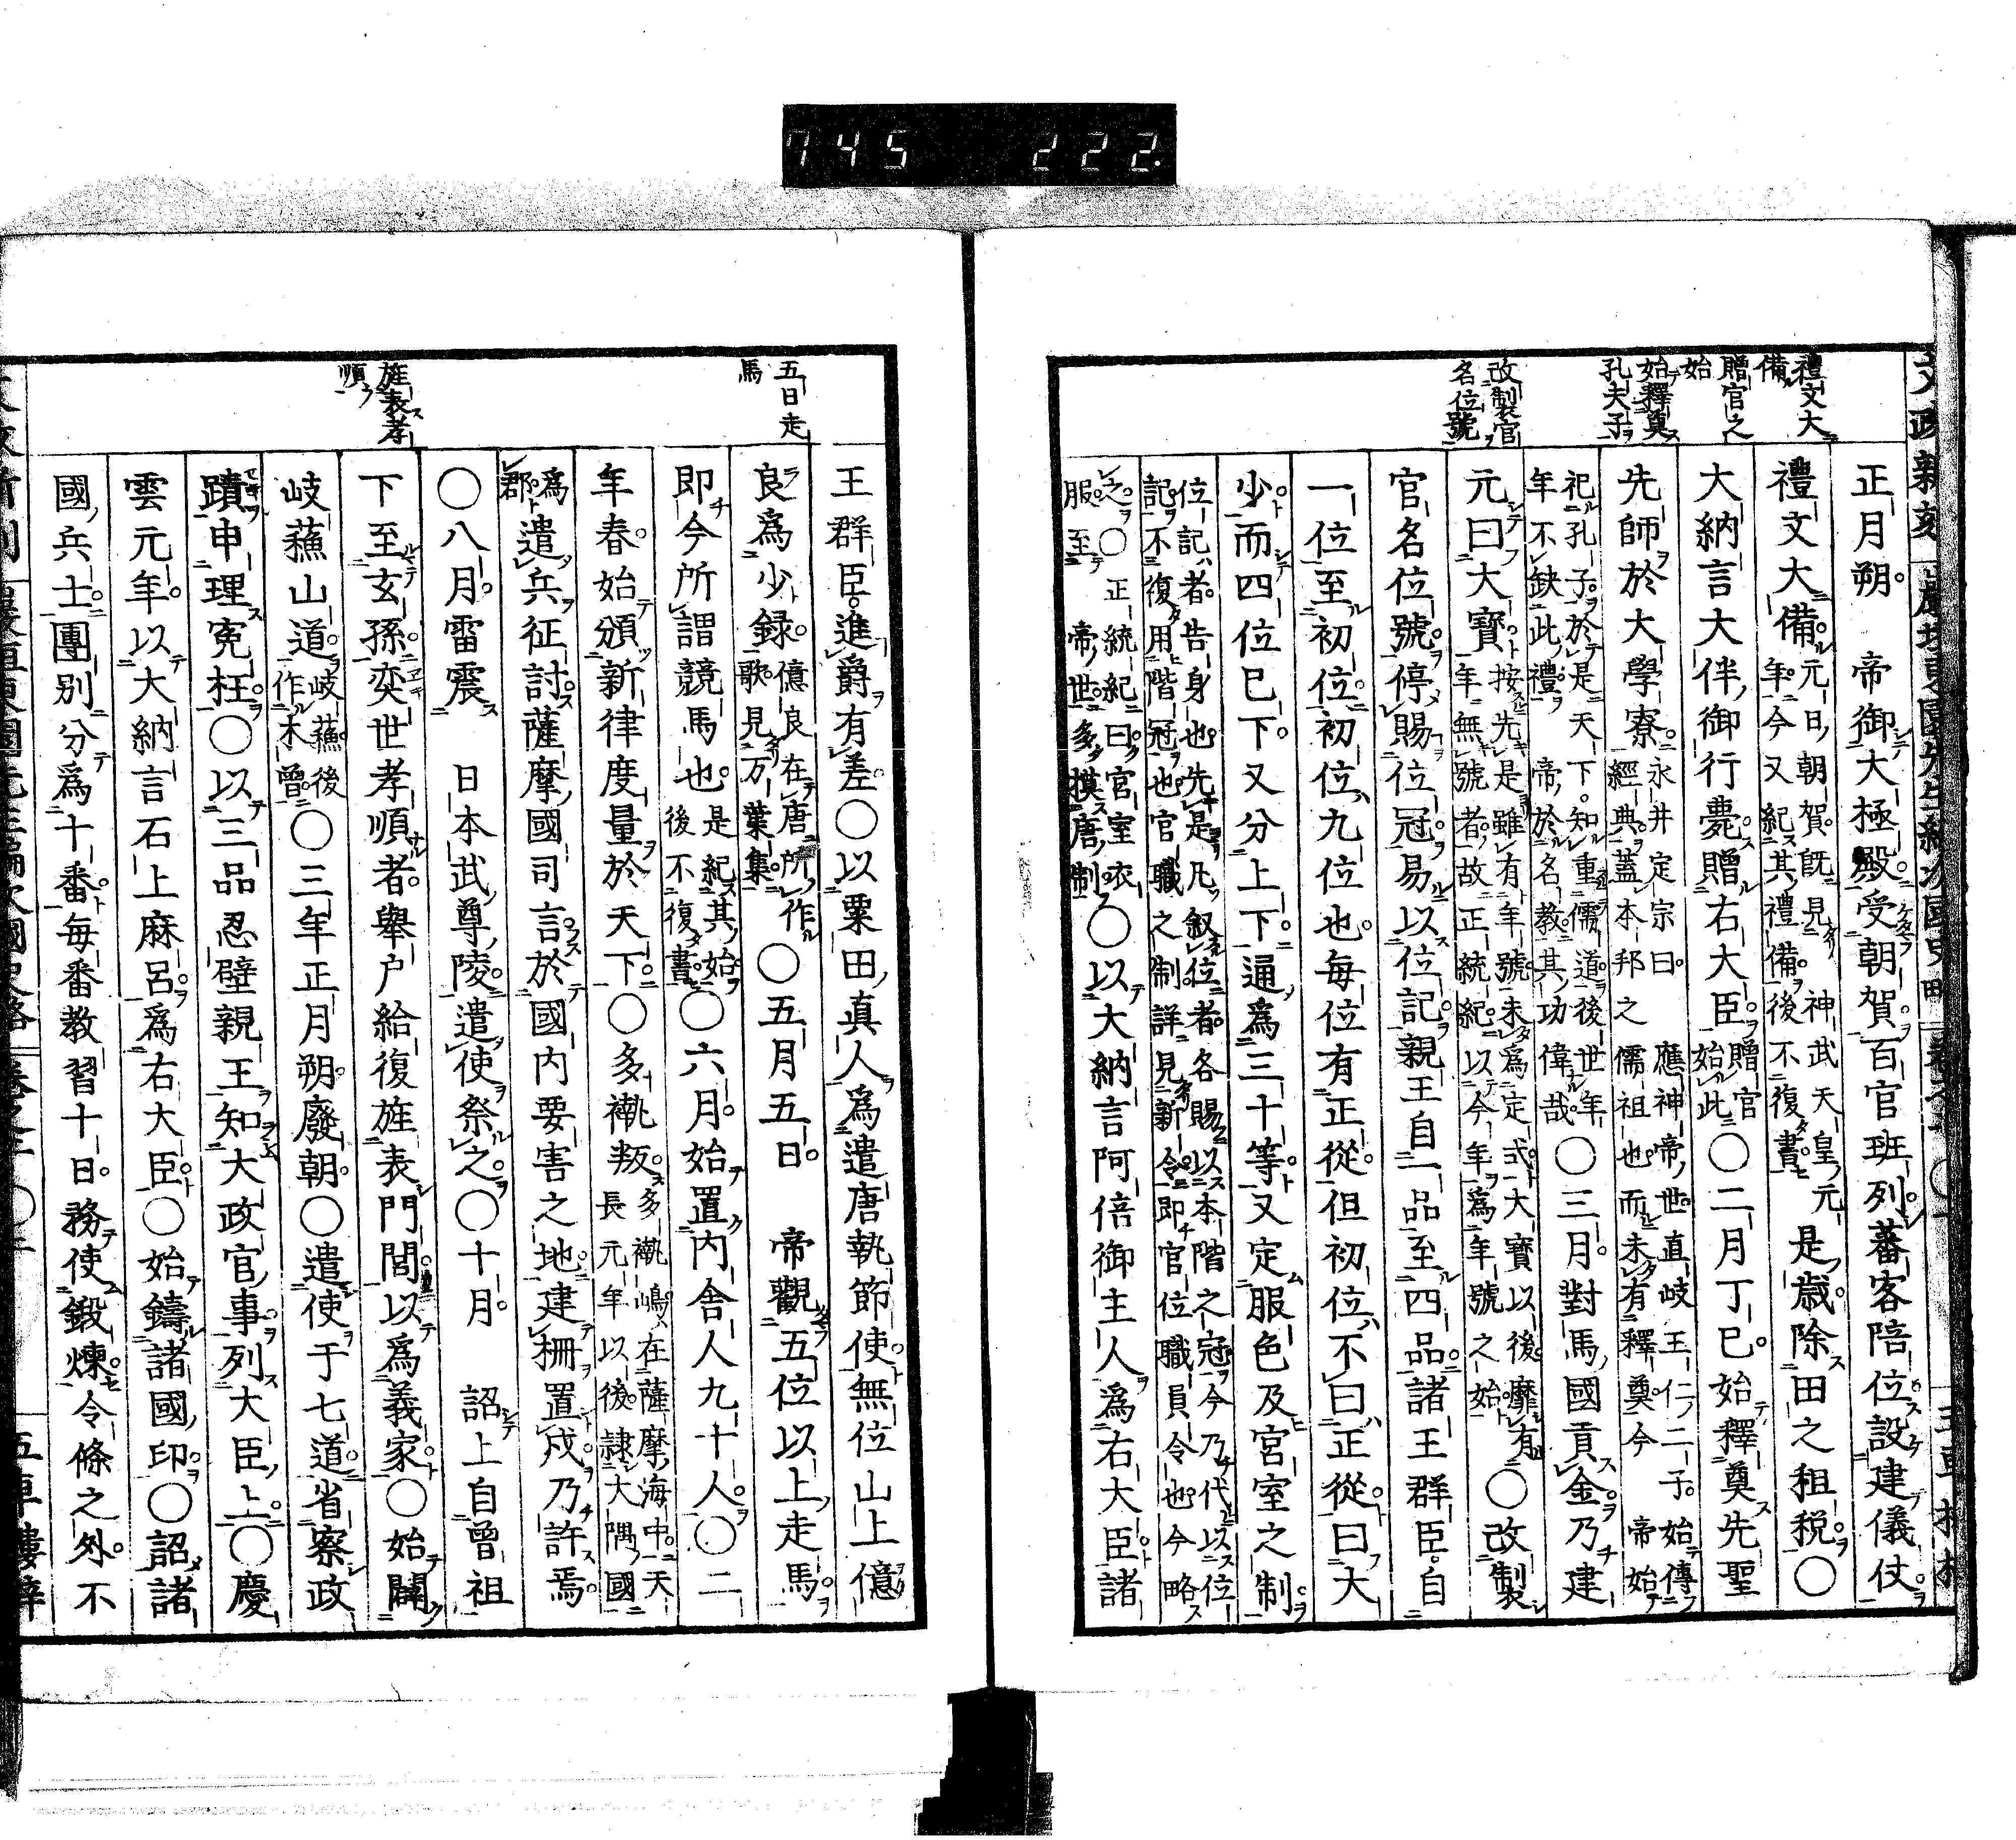 745 222
禮文大
備
贈官之
始
始釋奠
孔夫子
改製官
名位號
正月朔　帝御大極殿受朝賀百官班列蕃客陪位設建儀仗
禮文大備元日朝賀旣見　神武天皇元
年今又紀其禮備後不復書是歳除田之租税○
大納言大伴御行薨贈右大臣贈官
始此○二月丁巳始釋奠先聖
先師於大學寮永井定宗曰　應神帝世直岐王仁二子始傳
經典蓋本邦之儒祖也而未有釋奠今　帝始
祀孔子於是天下知重儒道後世年
年不缺此禮　帝於名教其功偉哉○三月對馬國貢金乃建
元曰大寶按先是雖有年號未爲定式大寶以後靡有
年無號者故正統紀以今年爲年號之始○改製
官名位號停賜位冠易以位記親王自一品至四品諸王群臣自
一位至初位初位九位也每位有正從但初位不曰正從曰大
少而四位巳下又分上下通爲三十等又定服色及宮室之制
位記者告身也先是凡叙位者各賜以本階之冠今乃代以位
記不復用階冠也官職之制詳見新令即官位職員令也今略
之○正統紀曰官室衣
服至　帝世多摸唐制○以大納言阿倍御主人爲右大臣諸
五日走
馬
旌表孝
順
王群臣進爵有差○以粟田真人爲遣唐執節使無位山上億
良爲少録億良在唐所作
歌見万葉集○五月五日　帝觀五位以上走馬
即今所謂競馬也是紀其始
後不復書○六月始置内舍人九十人○二
年春始頒新律度量於天下○多褹叛多褹嶋在薩摩海中天
長元年以後隷大隅國
爲
郡遣兵征討薩摩國司言於國内要害之地建柵置戍乃許焉
○八月雷震　日本武尊陵遣使祭之○十月　詔上自曾祖
下至玄孫奕世孝順者舉户給復旌表門閭以爲義家○始闢
岐蘓山道岐蘓後
作木曾○三年正月朔廢朝○遣使于七道省察政
蹟申理寃枉○以三品忍壁親王知大政官事列大臣上○慶
雲元年以大納言石上麻呂爲右大臣○始鑄諸國印○詔諸
國兵士團别分爲十番每番教習十日務使鍛煉令條之外不